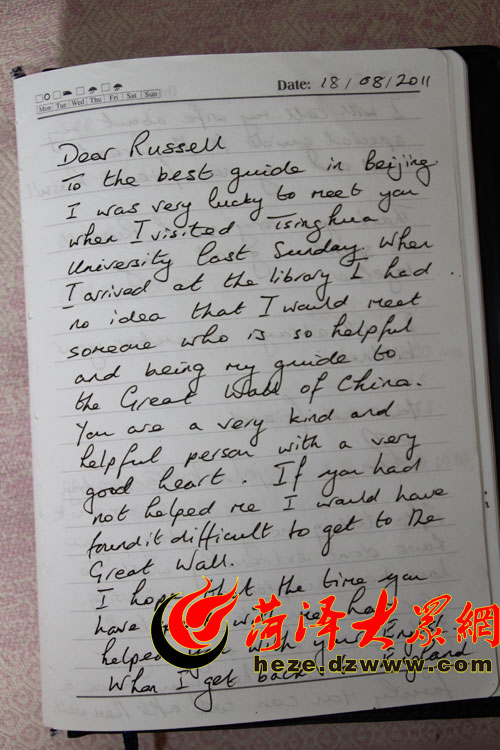 Mon Tue Wed Thu Fri Sat Sun
Date: 18/08/2011
Dear Russell
To the best guide in Beijing
I was very lucky to meet you
when I visited Tsinghua
University last Sunday. When
I arrived at the library I had
no idea that I would meet
someone who is so helpful
and being my guide to
the Great Wall of China.
You are a very kind and
helpful person with a very
good heart. If you had
not helped me I would have
found it difficult to get to the
Great Wall.
I hope that the time you
have with me has
helped you with your English
When I get back to England
菏泽大众網
heze.dzwww.com